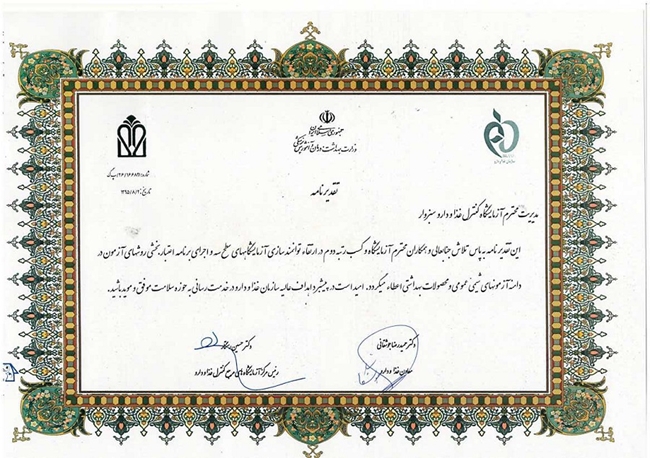 جمهوری اسلامی ایران
وزارت بهداشت، درمان و آموزش پزشکی
تاریخ: ۱۳۹۵/۸/۲
تقدیرنامه
مدیریت محترم آزمایشگاه کنترل غذا و دارو سبزوار
این تقدیرنامه به پاس تلاش جنابعالی و همکاران محترم آزمایشگاه و کسب رتبه دوم در ارتقاء توانمندسازی آزمایشگاههای سطح سه و اجرای برنامه اعتباربخشی روشهای آزمون در
دامنه آزمونهای شیمی عمومی و محصولات بهداشتی اعطاء میگردد. امید است در پیشبرد اهداف عالیه سازمان غذا و دارو در خدمت رسانی به حوزه سلامت موفق و موید باشید.
دکتر حسین رستگار
رئیس مرکز آزمایشگاه های مرجع کنترل غذا و دارو
معاون غذا و دارو